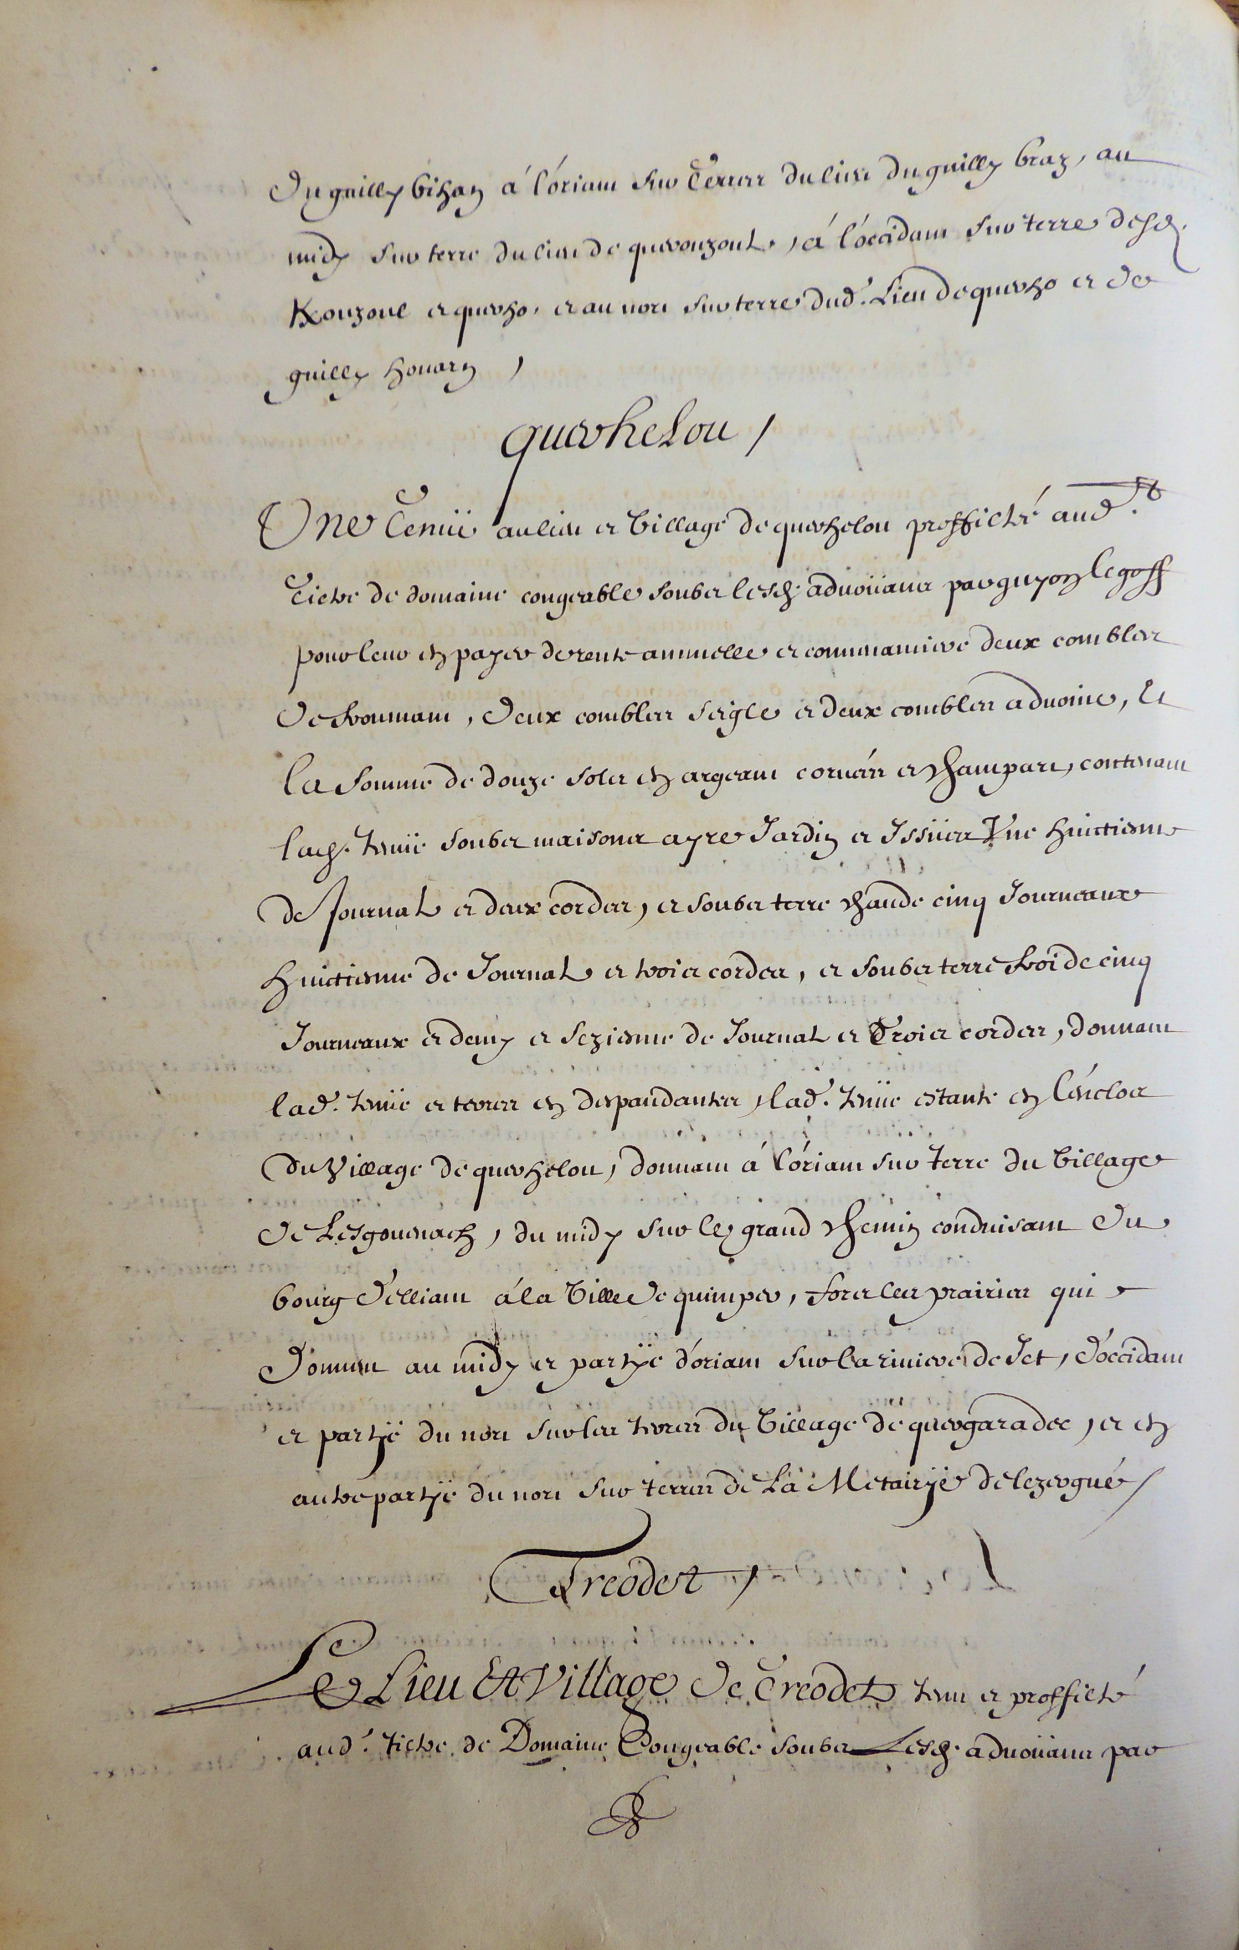 du guilly bihan á l'oriant sur terres du lieu du guilly braz, au
midy sur terre du lieu de querouzoul, á l'occidant sur terre desd.
Kouzoul et querho, et au nort sur terre dud. Lieu de querho et de
guilly houarn,
querhelou /
Une tenüe au lieu et village de querhelou proffictté aud.
tictre de domaine congeable soubz lesd. advoüantz par guyon le goff
pour leur en payer de rente annuelle et convenantiere deux combles
de fromant, deux combles seigle et deux combles advoine, et
la somme de douze solz en argeant corvées et champart, contenant
lad. tenüe soubz maisons ayre Jardin et Issües Une huictiesme
de Journal et deux cordes, et soubz terre chaude cinq Journeaux
huictiesme de Journal et trois cordes, et soubz terre froide cinq
Journeaux et demy et seziesme de Journal et Trois cordes, donnant
lad. tenüe et terres en despandantes, lad. tenüe estante en l'enclos
du Village de querhelou, donnant á l'oriant sur Terre du village
de Lesgouenach, du midy sur le grand chemin conduisant du
bourg d'elliant á la ville de quimper, fors les prairies qui
donnent au midy et partÿe d'oriant sur la riviere de Jet, d'occidant
et partÿe du nort sur les terres du village de quergaradec, et en
autre partÿe du nort sur terres de La Metairÿe de lezergué /
Treodet /
Le Lieu Et Village de Treodet tenu et proffictté
aud. tictre de Domaine Congeable soubz Lesd. advoüantz par